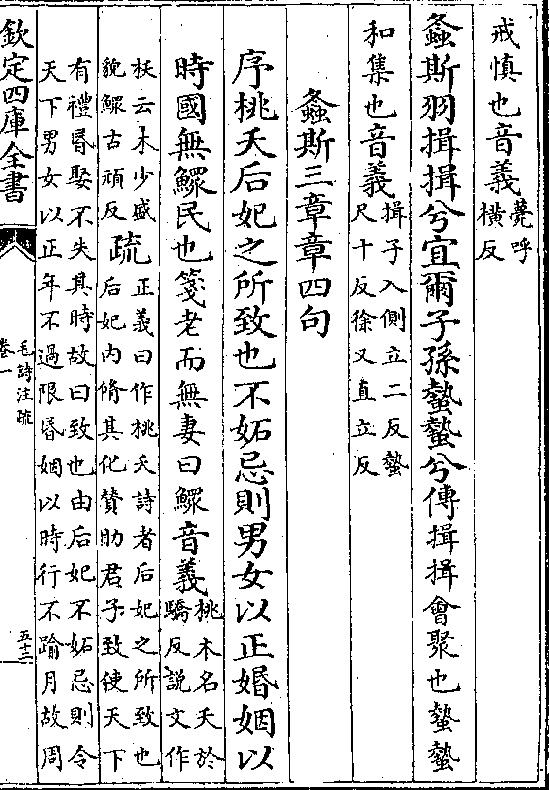 戒慎也音義薨呼
橫反
螽斯羽揖揖兮宜爾子孫蟄蟄兮傳揖揖會聚也蟄蟄
和集也音義揖子入側立二反蟄
尺十反徐又直立反
螽斯三章章四句
序桃夭后妃之所致也不妬忌則男女以正婚姻以
時國無鰥民也箋老而無妻曰鰥音義桃木名夭於
驕反說文作
枖云木少盛
貌鰥古頑反疏正義曰作桃夭詩者后妃之所致也
后妃内脩其化贊助君子致使天下
有禮昬娶不失其時故曰致也由后妃不妬忌則令
天下男女以正年不過限昬姻以時行不踰月故周
欽定四庫全書
毛詩注疏
卷一
五十三